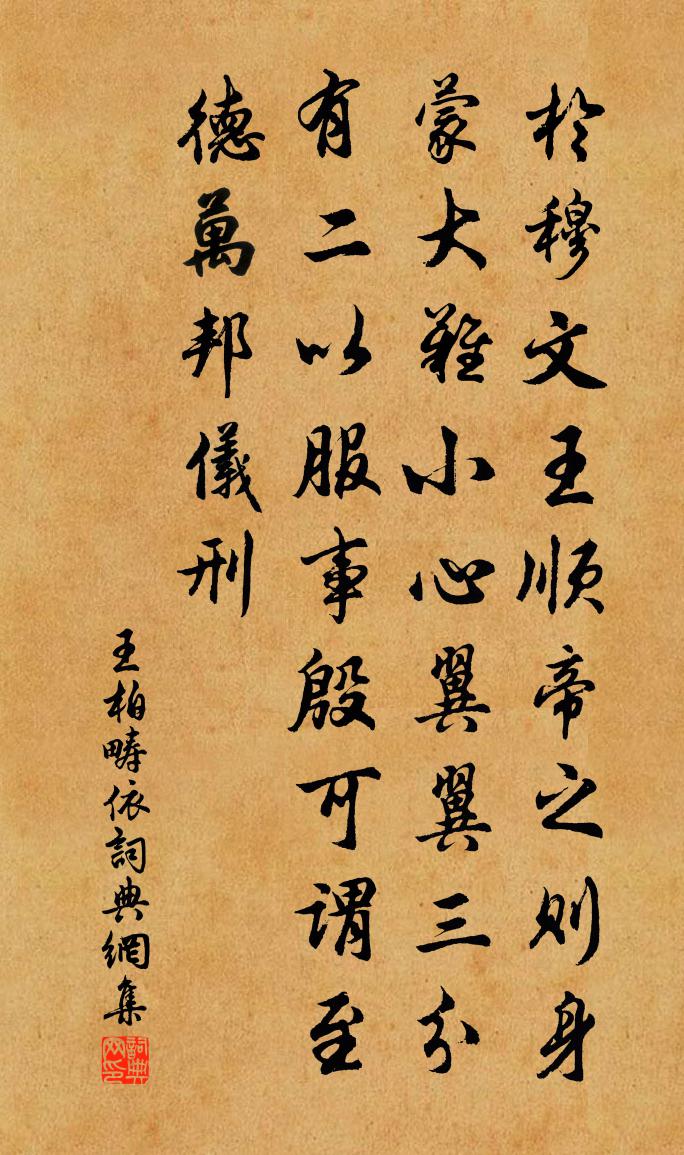 於穆文王順帝之則身
蒙大難小心翼翼三分
有二以服事殷可謂至
德萬邦儀刑
王柏疇依詞典網集
詞典网印